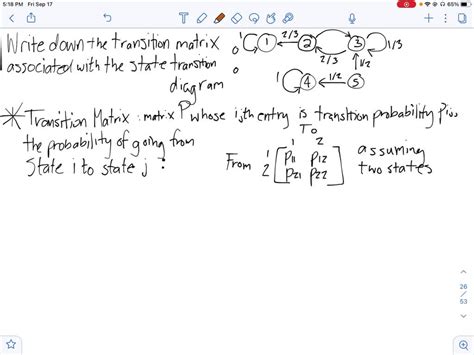 5:18 PM Fri Sep 17
65%
Write down the transition matrix
associated with the state transition
diagram
1
0
0
1
2/3
2
3
1/3
2/3
1/2
1
4
1/2
5
Transition Matrix: matrix P whose i,jth entry is transition probability
the probability of going from
State i to state j :
To
1 2
From 1
2
P11 P12
P21 P22
assuming
two states
26
/
53